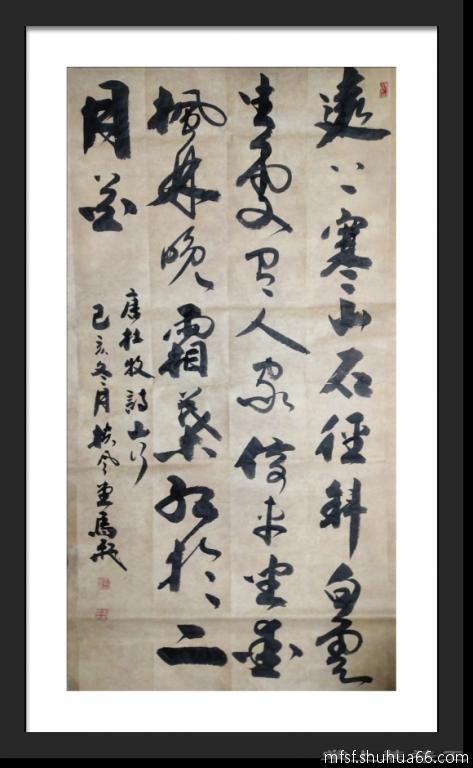 遠上寒山石徑斜白雲
生處有人家停車坐愛
楓林晚霜葉紅於二
月花
唐杜牧詩山行
己亥冬月
mfsf.shuhua66.com